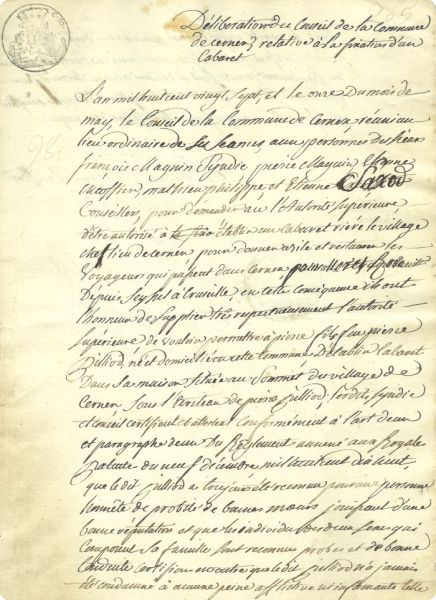 Déliberation du Conseil de la Commune
de cernex relative à la fixation d'un
Cabaret
L'an mil huit cent vingt sept, et le onze Du mois de
may, le Conseil de la Commune de Cernex réuni au
lieu ordinaire de ses seances, aux personnes des sieurs
françois Magnin Syndic pierre Magnin Etienne
mathieu philippe et Etienne Saxod
Conseillers, pour demander à l'Autorité Supérieure
d'etre autorisé à Etablir un cabaret rière le village
chef lieu de cernex pour donner asile et restaurer les
voyageurs qui passent dans Cernex
Depuis Seyssel à Cruseille, en cette conséquence ils ont
l'honneur de supplier très respectueusement l'autorité
Supérieure de vouloir permettre à pierre fils feu pierre
Julliod, né et domicilié en cette Commune D'etablir Cabaret
Dans sa maison située au Sommet du village de
Cernex, sous l'Ecriteau de pierre Julliod, les dits syndic
et conseil certifient et attestent Conformément à l'art deux
et paragraphe deux Du Règlement annexé aux Royale
patente du neuf décembre mil huit cent dix huit,
que le dit Julliod a toujours été reconnu pour une personne
honnête de probité de bonnes mœurs jouissant d'une
bonne réputation et que les individus des deux sexes qui
composent sa famille sont reconnus probes et de bonne
Conduite certifions en outre que le dit Julliod n'a jamais
été condamné à aucune peine afflictive ni infamante telle